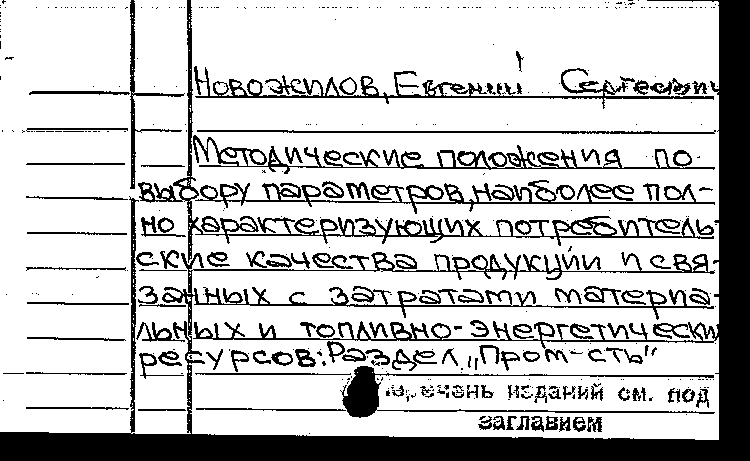 Новожилов, Евгений Сергеевич
Методические положения по
выбору параметров, наиболее пол-
но характеризующих потребитель-
ские качества продукции и свя-
занных с затратами материа-
льных и топливно-энергетически
ресурсов: Раздел „Пром-сть"
Перечень изданий см. под
заглавием